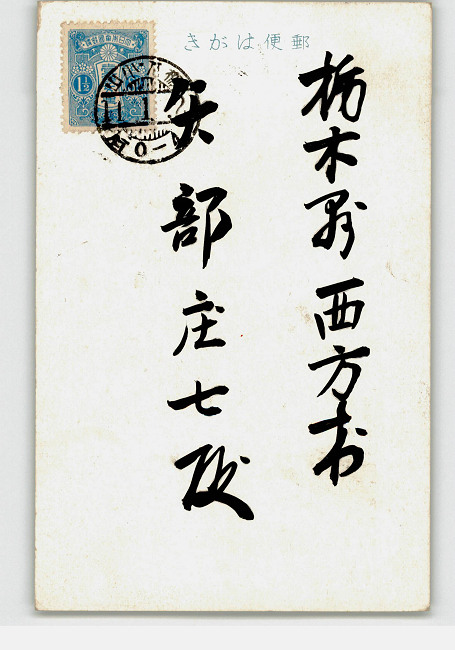 きがは便郵
栃木縣西方村
矢部庄七殿
1½
11.1